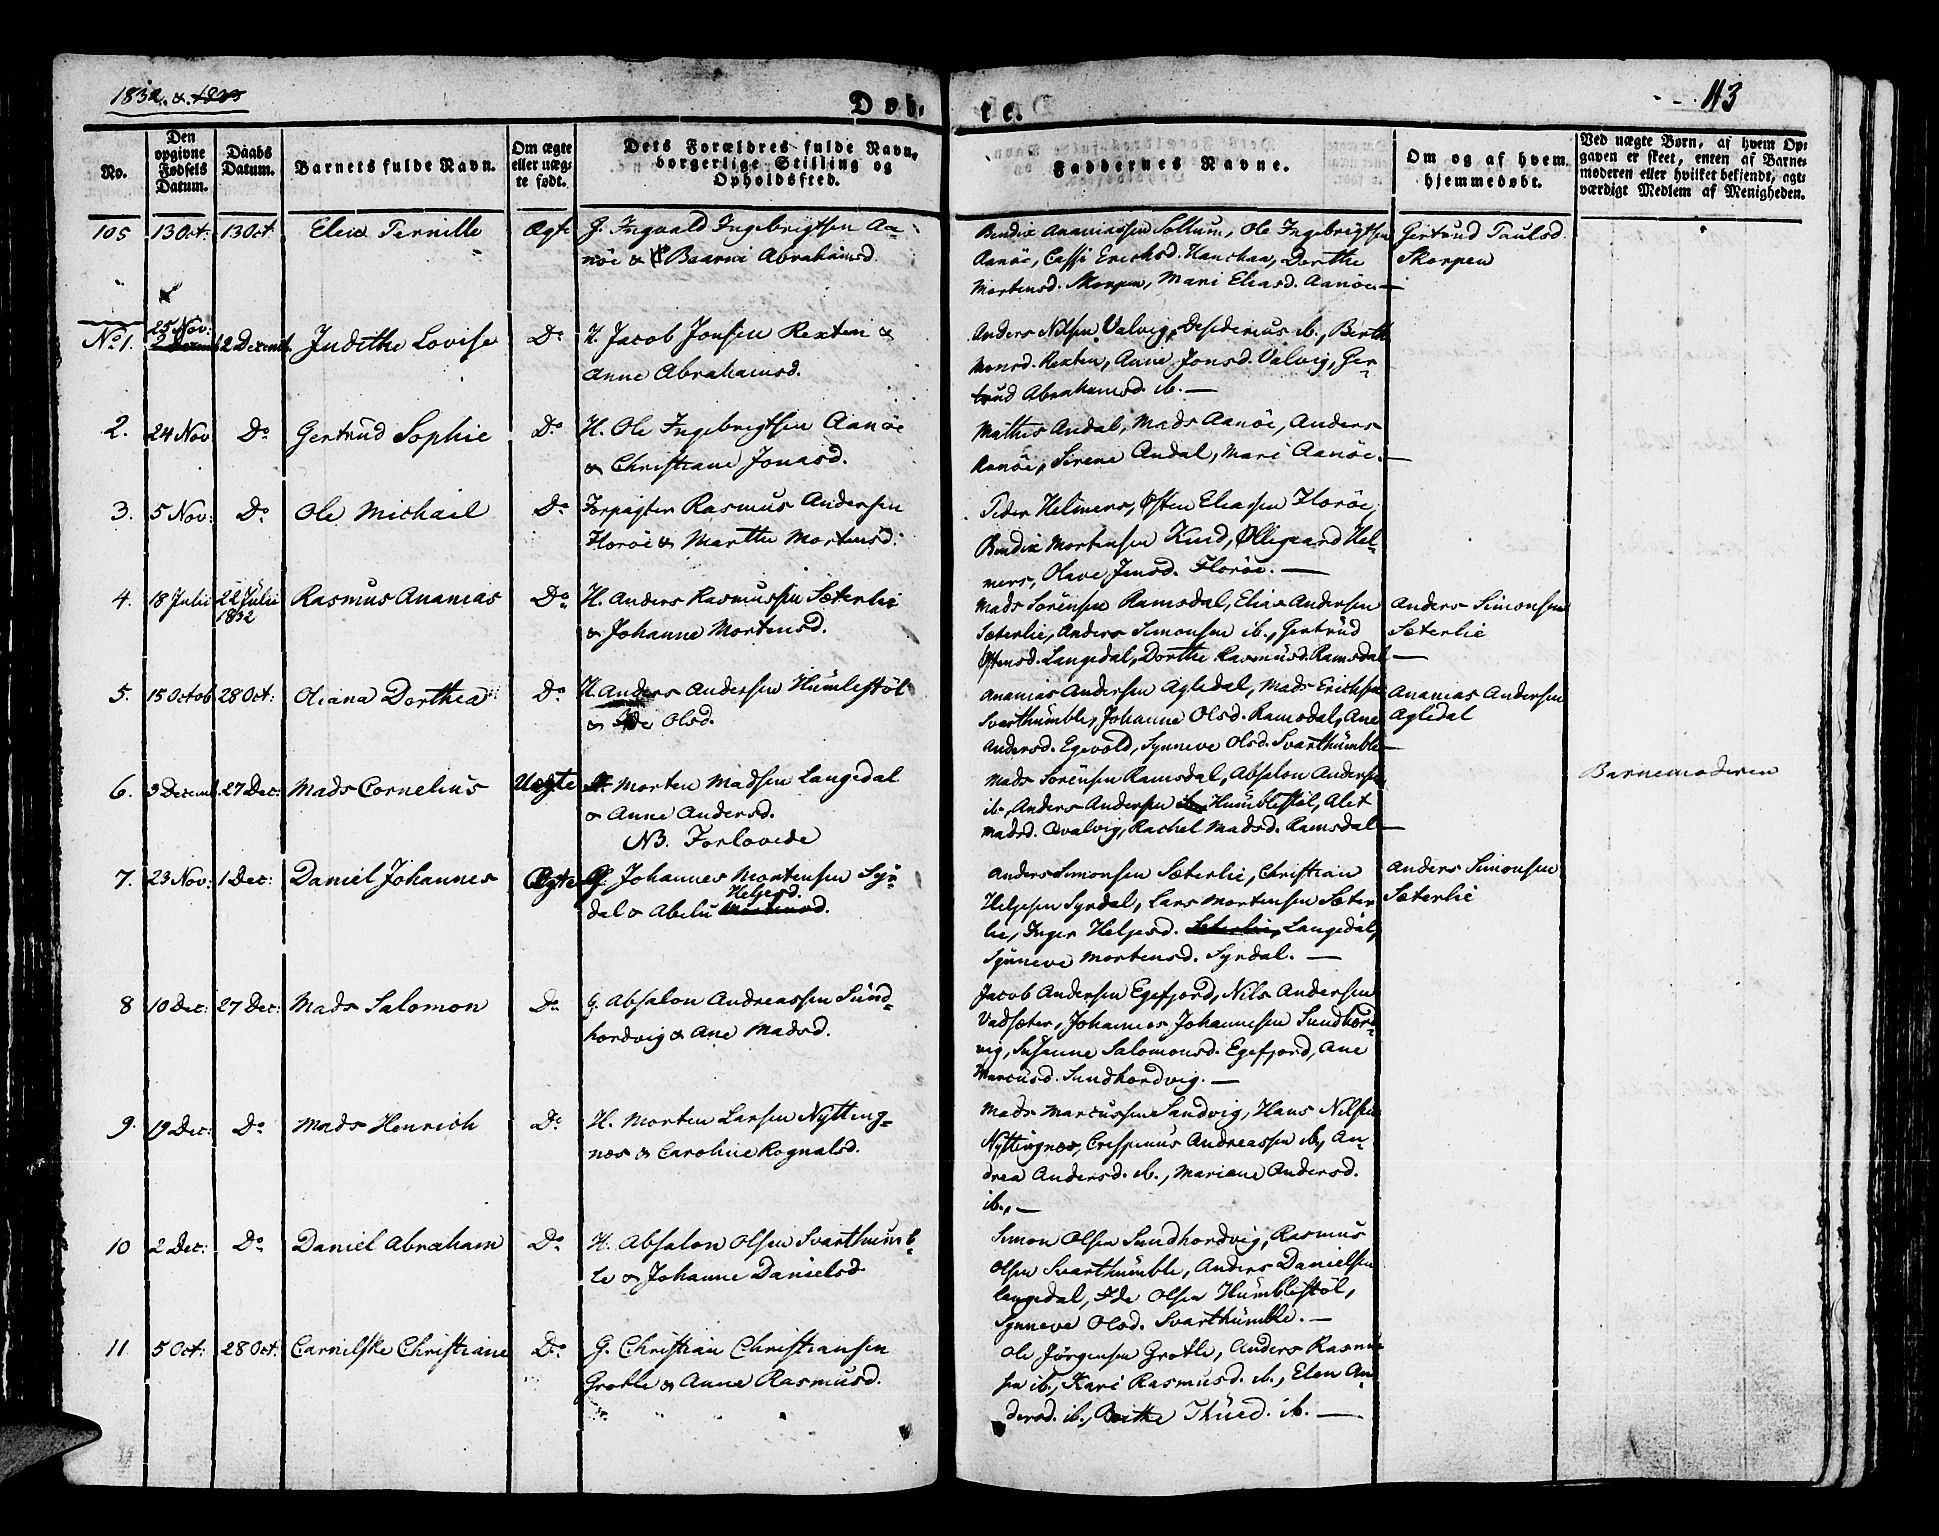 1832. & 1833
Døb-
te.
113
No.
Den opgivne Fødsels Datum.
Daabs Datum.
Barnets fulde Navn.
Om ægte eller uægte født.
Dets Forældres fulde Navn, borgerlige Stilling og Opholdssted.
Faddernes Navne.
Om og af hvem hjemmedøbt.
Ved uægte Børn, af hvem Opgaven er skeet, enten af Barnemoderen eller hvilket bekjendt, agtværdigt Medlem af Menigheden.
105 13 Oct: 13 Oct. Elen Pernille Ægte G. Ingvald Ingebrigtsen Aa-
nöe & Baarni Abrahamsd.
Bendix Ananiassen Soltum, Ole Ingebrigtsen
Aanöe, Cassi Erichsd. Hanchaa, Dorthe
Mortensd. Skorpen, Mari Eliasd. Aanöe. —
Gertrud Paulsd.
Skorpen
No 1. 25 Nov: 2 Decemb. 2 Decemb. Judithe Lovise Do H. Jacob Jonsen Rexten &
Anne Abrahamsd.
Anders Nilsen Valvig, Desiderius ib., Berth
Monsd. Rexten, Anne Jonsd. Valvig, Ger-
trud Abrahamsd. ib. —
2. 24 Nov Do Gertrud Sophie Do H. Ole Ingebrigtsen Aanöe
& Christiane Jonasd.
Mathis Andal, Mads Aanöe, Anders
Aanöe, Sirene Andal, Mari Aanöe. —
3. 5 Nov: Do Ole Michael Do Forpagter Rasmus Andersen
Floröe & Marthe Mortensd.
Peder Helmers, Østen Eliassen Floröe,
Bendix Mortensen Kind, Øllegaard Hel-
mers, Olave Jensd. Floröe. —
4. 18 Julii 22 Julii 1832 Rasmus Ananias Do H. Anders Rasmussen Sæterlie
& Johanne Mortensd.
Mads Sörensen Ramsdal, Elias Andersen
Sæterlie, Anders Simonsen ib., Gertrud
Østensd. Langedal, Dorthe Rasmusd. Ramsdal —
Anders Simonsen
Sæterlie
5. 15 Octob 28 Oct: Oliana Dorthea Do H. Anders Andersen Humlestöl
& Ide Olsd.
Ananias Andersen Agledal, Mads Erichsen
Svarthumble, Johanne Olsd. Ramsdal, Ane
Andersd. Egevold, Synneve Olsd. Svarthumble —
Ananias Andersen
Agledal
6. 3 Decemb. 27 Dec: Mads Cornelius Uægte Morten Madsen Langedal
& Anne Andersd.
NB. Forlovede
Mads Sörensen Ramsdal, Absalon Andersen
ib., Anders Andersen Humblestöl, Alet
Madsd. Qvalvig, Rachel Madsd. Ramsdal —
Barnemoderen
7. 23 Nov: 1 Dec: Daniel Johannes Ægte Johannes Mortensen Syr-
dal & Abelu Heljesd.
Anders Simonsen Sæterlie, Christian
Heljesen Syrdal, Lars Mortensen Sæter-
lie, Inger Heljesd. Sæterlie, Langedal,
Synneve Mortensd. Syrdal. —
Anders Simonsen
Sæterlie
8 10 Dec: 27 Dec: Mads Salomon Do G. Absalon Andreassen Sund-
hordvig & Ane Madsd.
Jacob Andersen Egefjord, Nils Andersen
Vadsæter, Johannes Johannesen Sundhord-
vig, Susanne Salomonsd. Egefjord, Ane
Marcusd. Sundhordvig. —
9. 19 Dec: Do Mads Henrich Do H. Morten Larsen Nytting-
næs & Caroline Rognalsd.
Mads Marcussen Sandvig, Hans Nilsen
Nyttingnæs, Crespinus Andreassen ib., An-
drea Andersd. ib., Mariane Andersd.
ib. —
10 2 Dec: Do Daniel Abraham Do H. Absalon Olsen Svarthumb-
le & Johanne Danielsd.
Simon Olsen Sundhordvig, Rasmus
Olsen Svarthumble, Anders Danielsen
Langedal, Ide Olsen Humblestöl,
Synneve Olsd. Svarthumble. —
11 5 Oct: 28 Oct: Carnilske Christiane Do G. Christian Christiansen
Grotle & Anne Rasmusd.
Ole Jörgensen Grotle, Anders Rasmu-
sen ib., Kari Rasmusd. ib., Elen An-
dersd. ib., Berthe Thued. ib. —